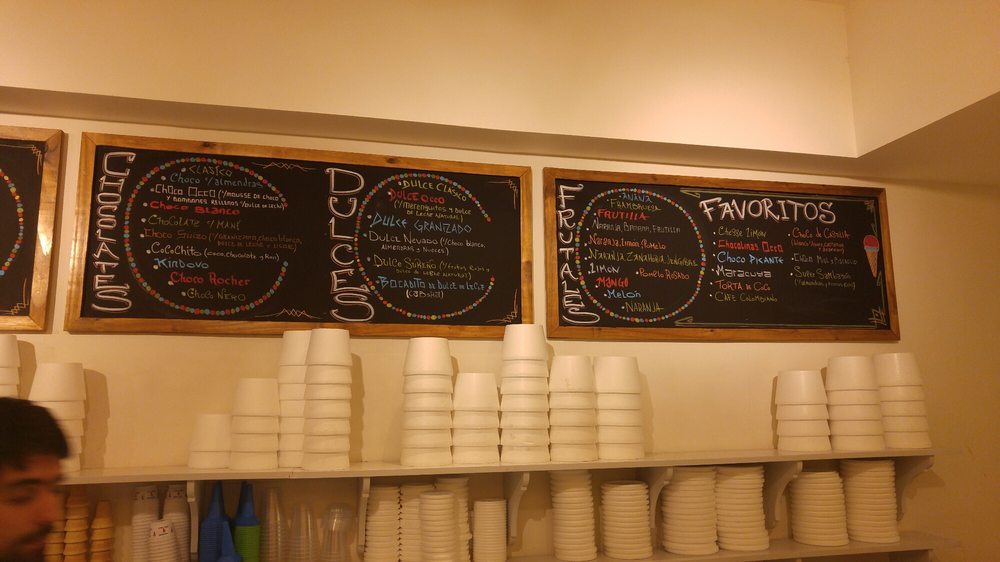 CHOCOLATES
• CLÁSICO
• Choco c/almendras
• Choco Otto (c/mousse de choco
y bombones rellenos c/dulce de leche)
• Choco Blanco
• Chocolate c/Maní
• Choco Suizo (c/granizado choco blanco,
dulce de leche y licor)
• CoCoChito (coco, chocolate y Ron)
• Kinbovo
• Choco Rocher
• Choco Negro
DULCES
• DULCE CLÁSICO
• DULCE Otto
(c/merenguitos y dulce
de leche natural)
• DULCE GRANIZADO
• DULCE NEVADO (c/choco blanco,
almendras y nueces)
• DULCE SUREÑO
• BOCADITO de DULCE de LECHE
FRUTALES
• ANANÁ
• FRAMBUESA
• FRUTILLA
• NARANJA, BANANA, FRUTILLA
• Naranja, Limón, Pomelo
• NARANJA ZANAHORIA JENGIBRE
• LIMON
• Pomelo ROSADO
• MANGO
• Melón
• NARANJA
FAVORITOS
• Chocolinas Otto
• Choco PICANTE
• Maracuya
• TORTA de CoCo
• CAFÉ Colombiano
• Super Sambayón